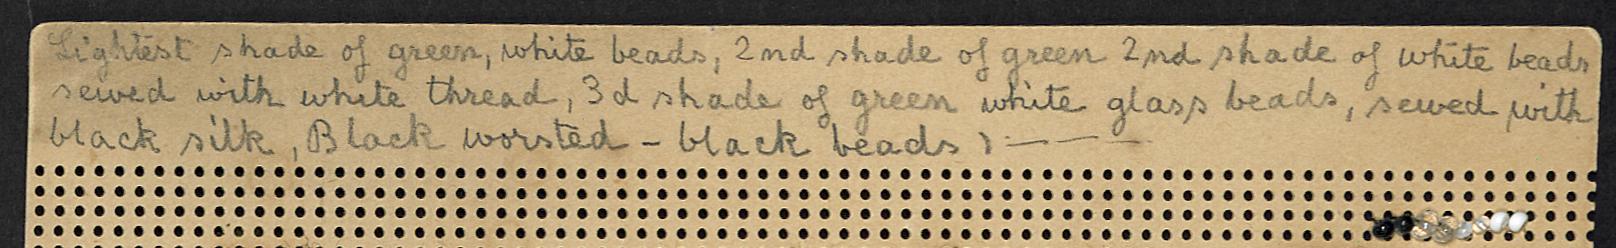 Lightest shade of green, white beads, 2nd shade of green 2nd shade of white beads
sewed with white thread, 3d shade of green white glass beads, sewed with
black silk, Black worsted - black beads